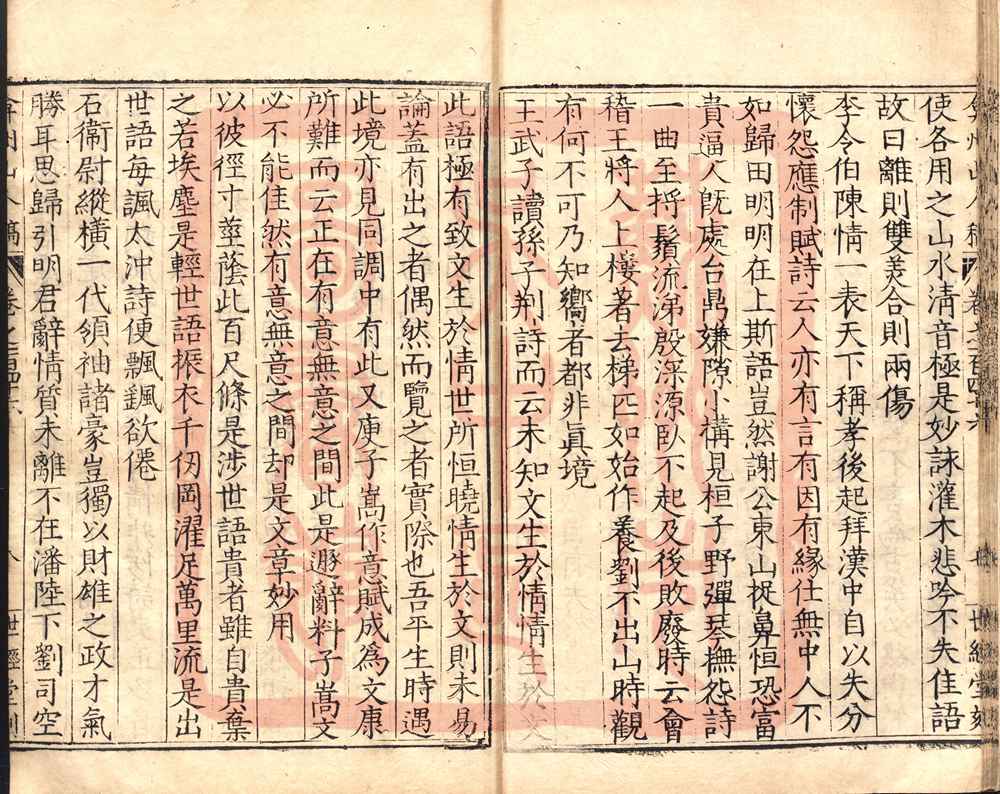 弇州山人稿 卷之一百四十六 世經堂刻
使各用之山水清音極是妙詠灌木悲吟不失佳語
故曰離則雙美合則兩傷
李令伯陳情一表天下稱孝後起拜漢中自以失分
懷怨應制賦詩云人亦有言有因有緣仕無中人不
如歸田明明在上斯語豈然謝公東山捉鼻恒恐富
貴逼人旣處台鼎嫌隙小構見桓子野彈琴撫怨詩
一曲至捋鬚流涕殷深源臥不起及後敗廢時云會
稽王將人上樓著去梯匹如始作養劉不出山時觀
有何不可乃知嚮者都非眞境
王武子讀孫子荆詩而云未知文生於情情生於文
此語極有致文生於情世所恒曉情生於文則未易
論蓋有出之者偶然而覽之者實際也吾平生時遇
此境亦見同調中有此又庾子嵩作意賦成爲文康
所難而云正在有意無意之間此是遯辭料子嵩文
必不能佳然有意無意之間却是文章妙用
以彼徑寸莖蔭此百尺條是涉世語貴者雖自貴棄
之若埃塵是輕世語振衣千仞岡濯足萬里流是出
世語每諷太沖詩便飄飄欲僊
石衞尉縱橫一代領袖諸豪豈獨以財雄之政才氣
勝耳思歸引明君辭情質未離不在潘陸下劉司空
弇州山人稿 卷之一百四十六 八 世經堂刻